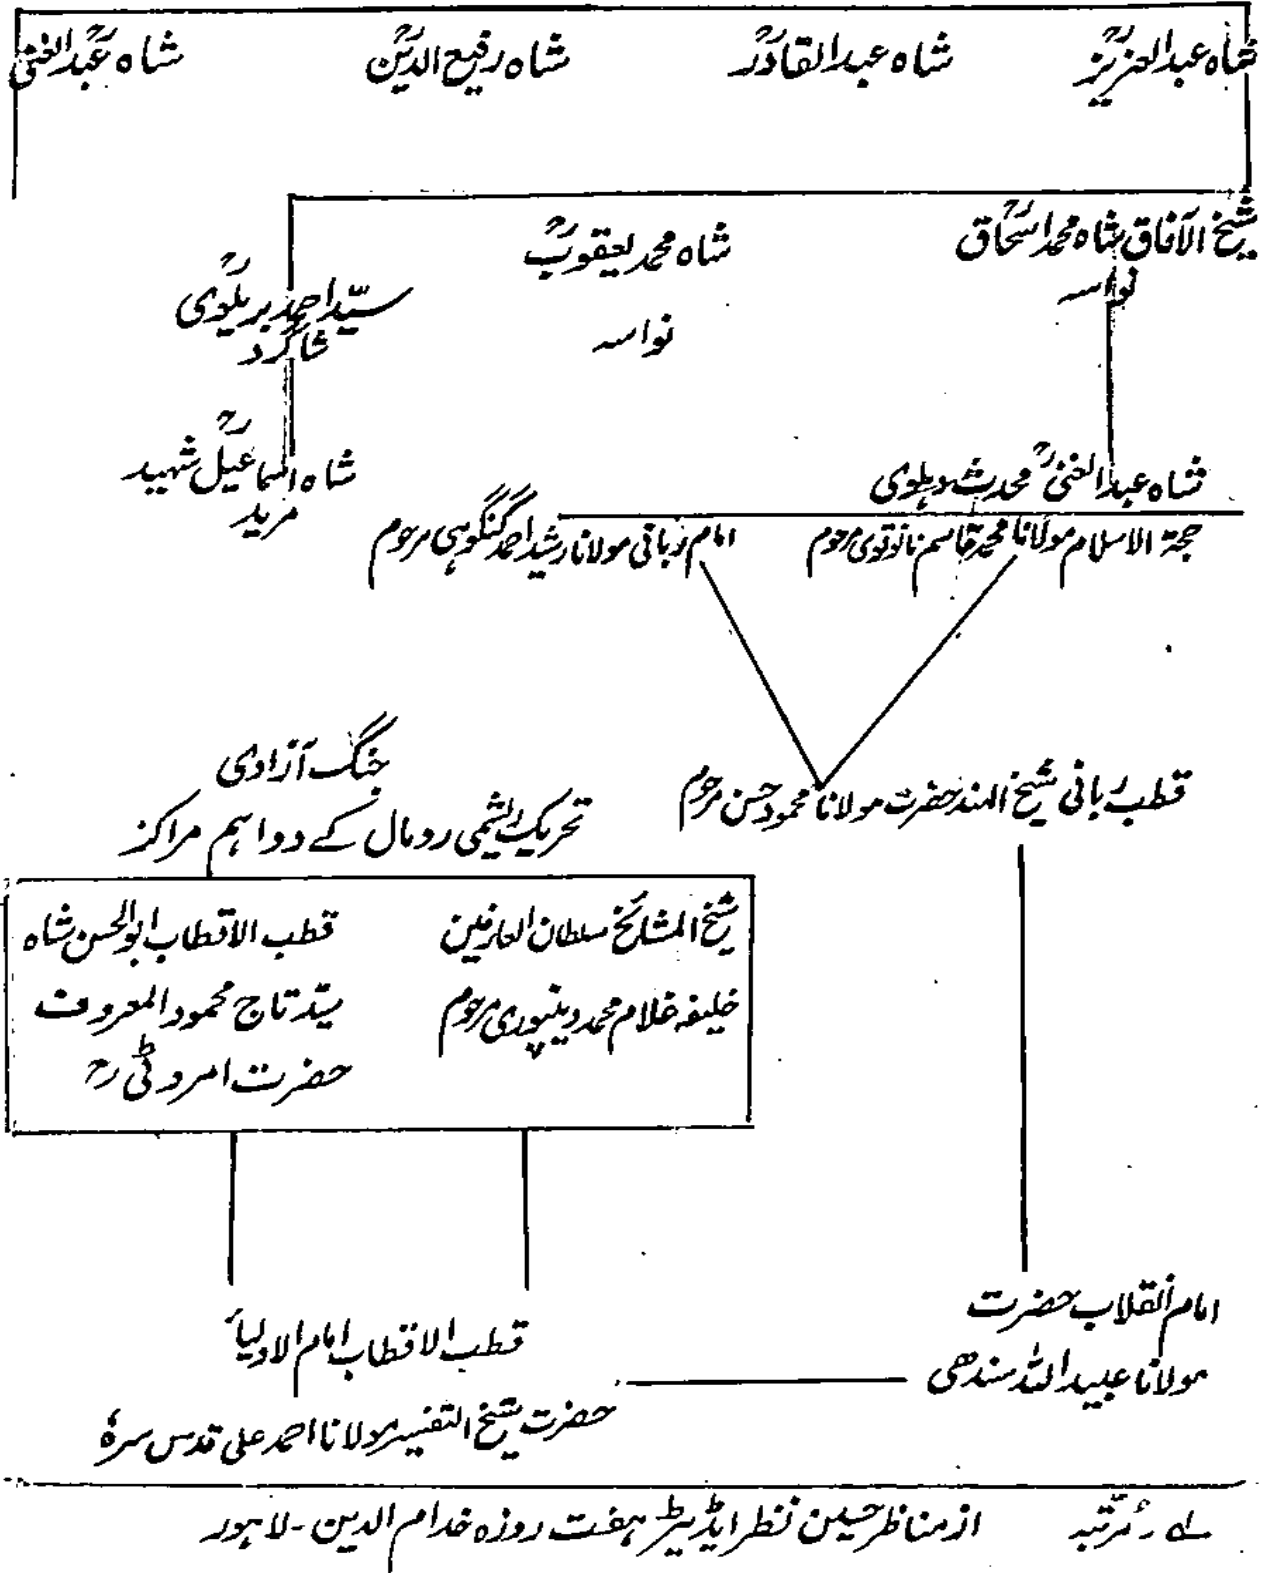 شاہ عبدالعزیزؒ شاہ عبدالقادرؒ شاہ رفیع الدینؒ شاہ عبدالغنیؒ
شیخ الآفاق شاہ محمد اسحاقؒ
نواسہ
شاہ محمد یعقوبؒ
نواسہ
سیّد احمد بریلویؒ
شاگرد
شاہ اسماعیلؒ شہید
مرید
شاہ عبدالغنیؒ محدث دہلوی
حجۃ الاسلام مولانا محمد قاسم نانوتوی مرحوم
امام ربانی مولانا رشید احمد گنگوہی مرحوم
قطب ربانی شیخ الہند حضرت مولانا محمود حسن مرحوم
جنگ آزادی
تحریک ریشمی رومال کے دو اہم مراکز
شیخ المشائخ سلطان العارفین
خلیفہ غلام محمد دینپوری مرحوم
قطب الاقطاب ابوالحسن شاہ
سیّد تاج محمود المعروف
حضرت امروٹی رح
امام انقلاب حضرت
مولانا عبیداللہ سندھی
قطب الاقطاب امام الاولیاء
حضرت شیخ التفسیر مولانا احمد علی قدس سرہٗ
لے مرتبہ از مناظر حسین نظر ایڈیٹر ہفت روزہ خدام الدین - لاہور